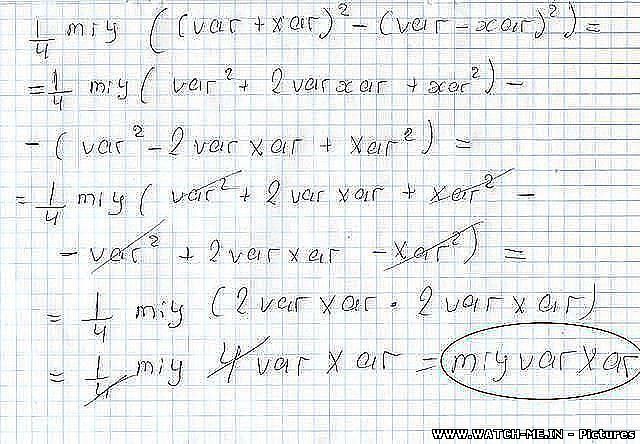 1/4 miy ((var + xar)² - (var - xar)²) =
= 1/4 miy (var² + 2 var xar + xar²) -
- (var² - 2 var xar + xar²) =
= 1/4 miy (var² + 2 var xar + xar² -
- var² + 2 var xar - xar²) =
= 1/4 miy (2 var xar · 2 var xar)
= 1/4 miy 4 var xar = miy var xar
WWW.WATCH-ME.IN - Pictures